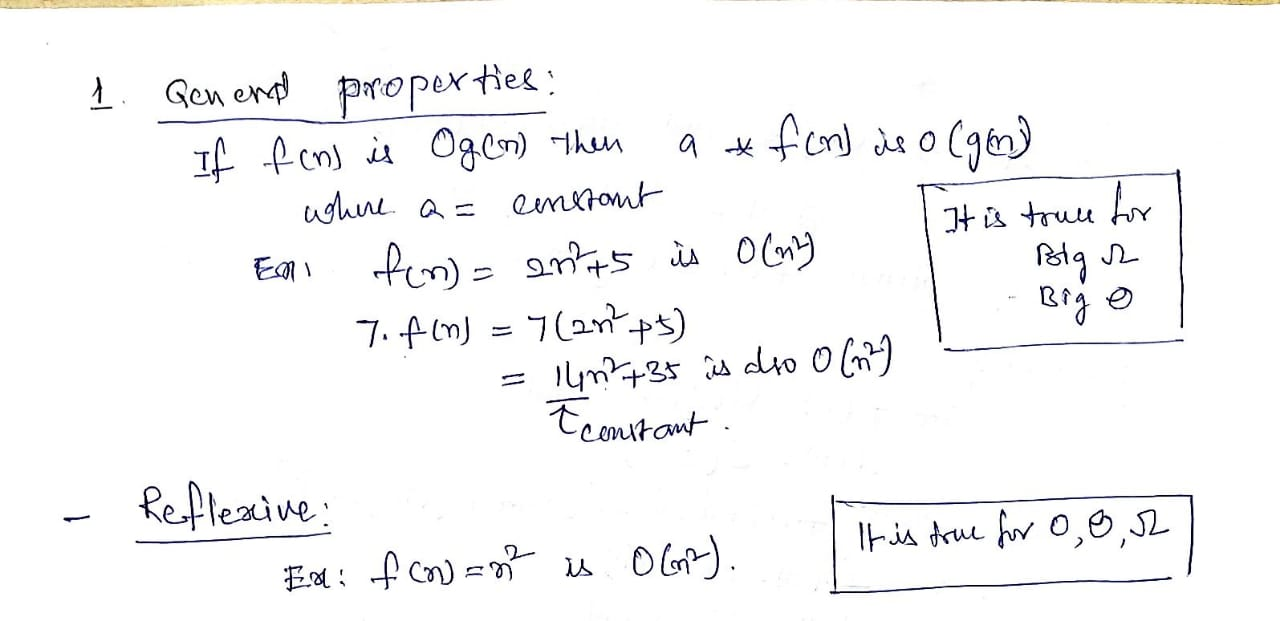 1. General properties:
If f(n) is Og(n) then a * f(n) is O(g(n))
where a = constant
Ex: f(n) = 2n²+5 is O(n²)
7. f(n) = 7(2n²+5)
= 14n²+35 is also O(n²)
constant.
It is true for
Big Ω
Big θ
- Reflexive:
Ex: f(n) = n² is O(n²).
It is true for O,θ,Ω